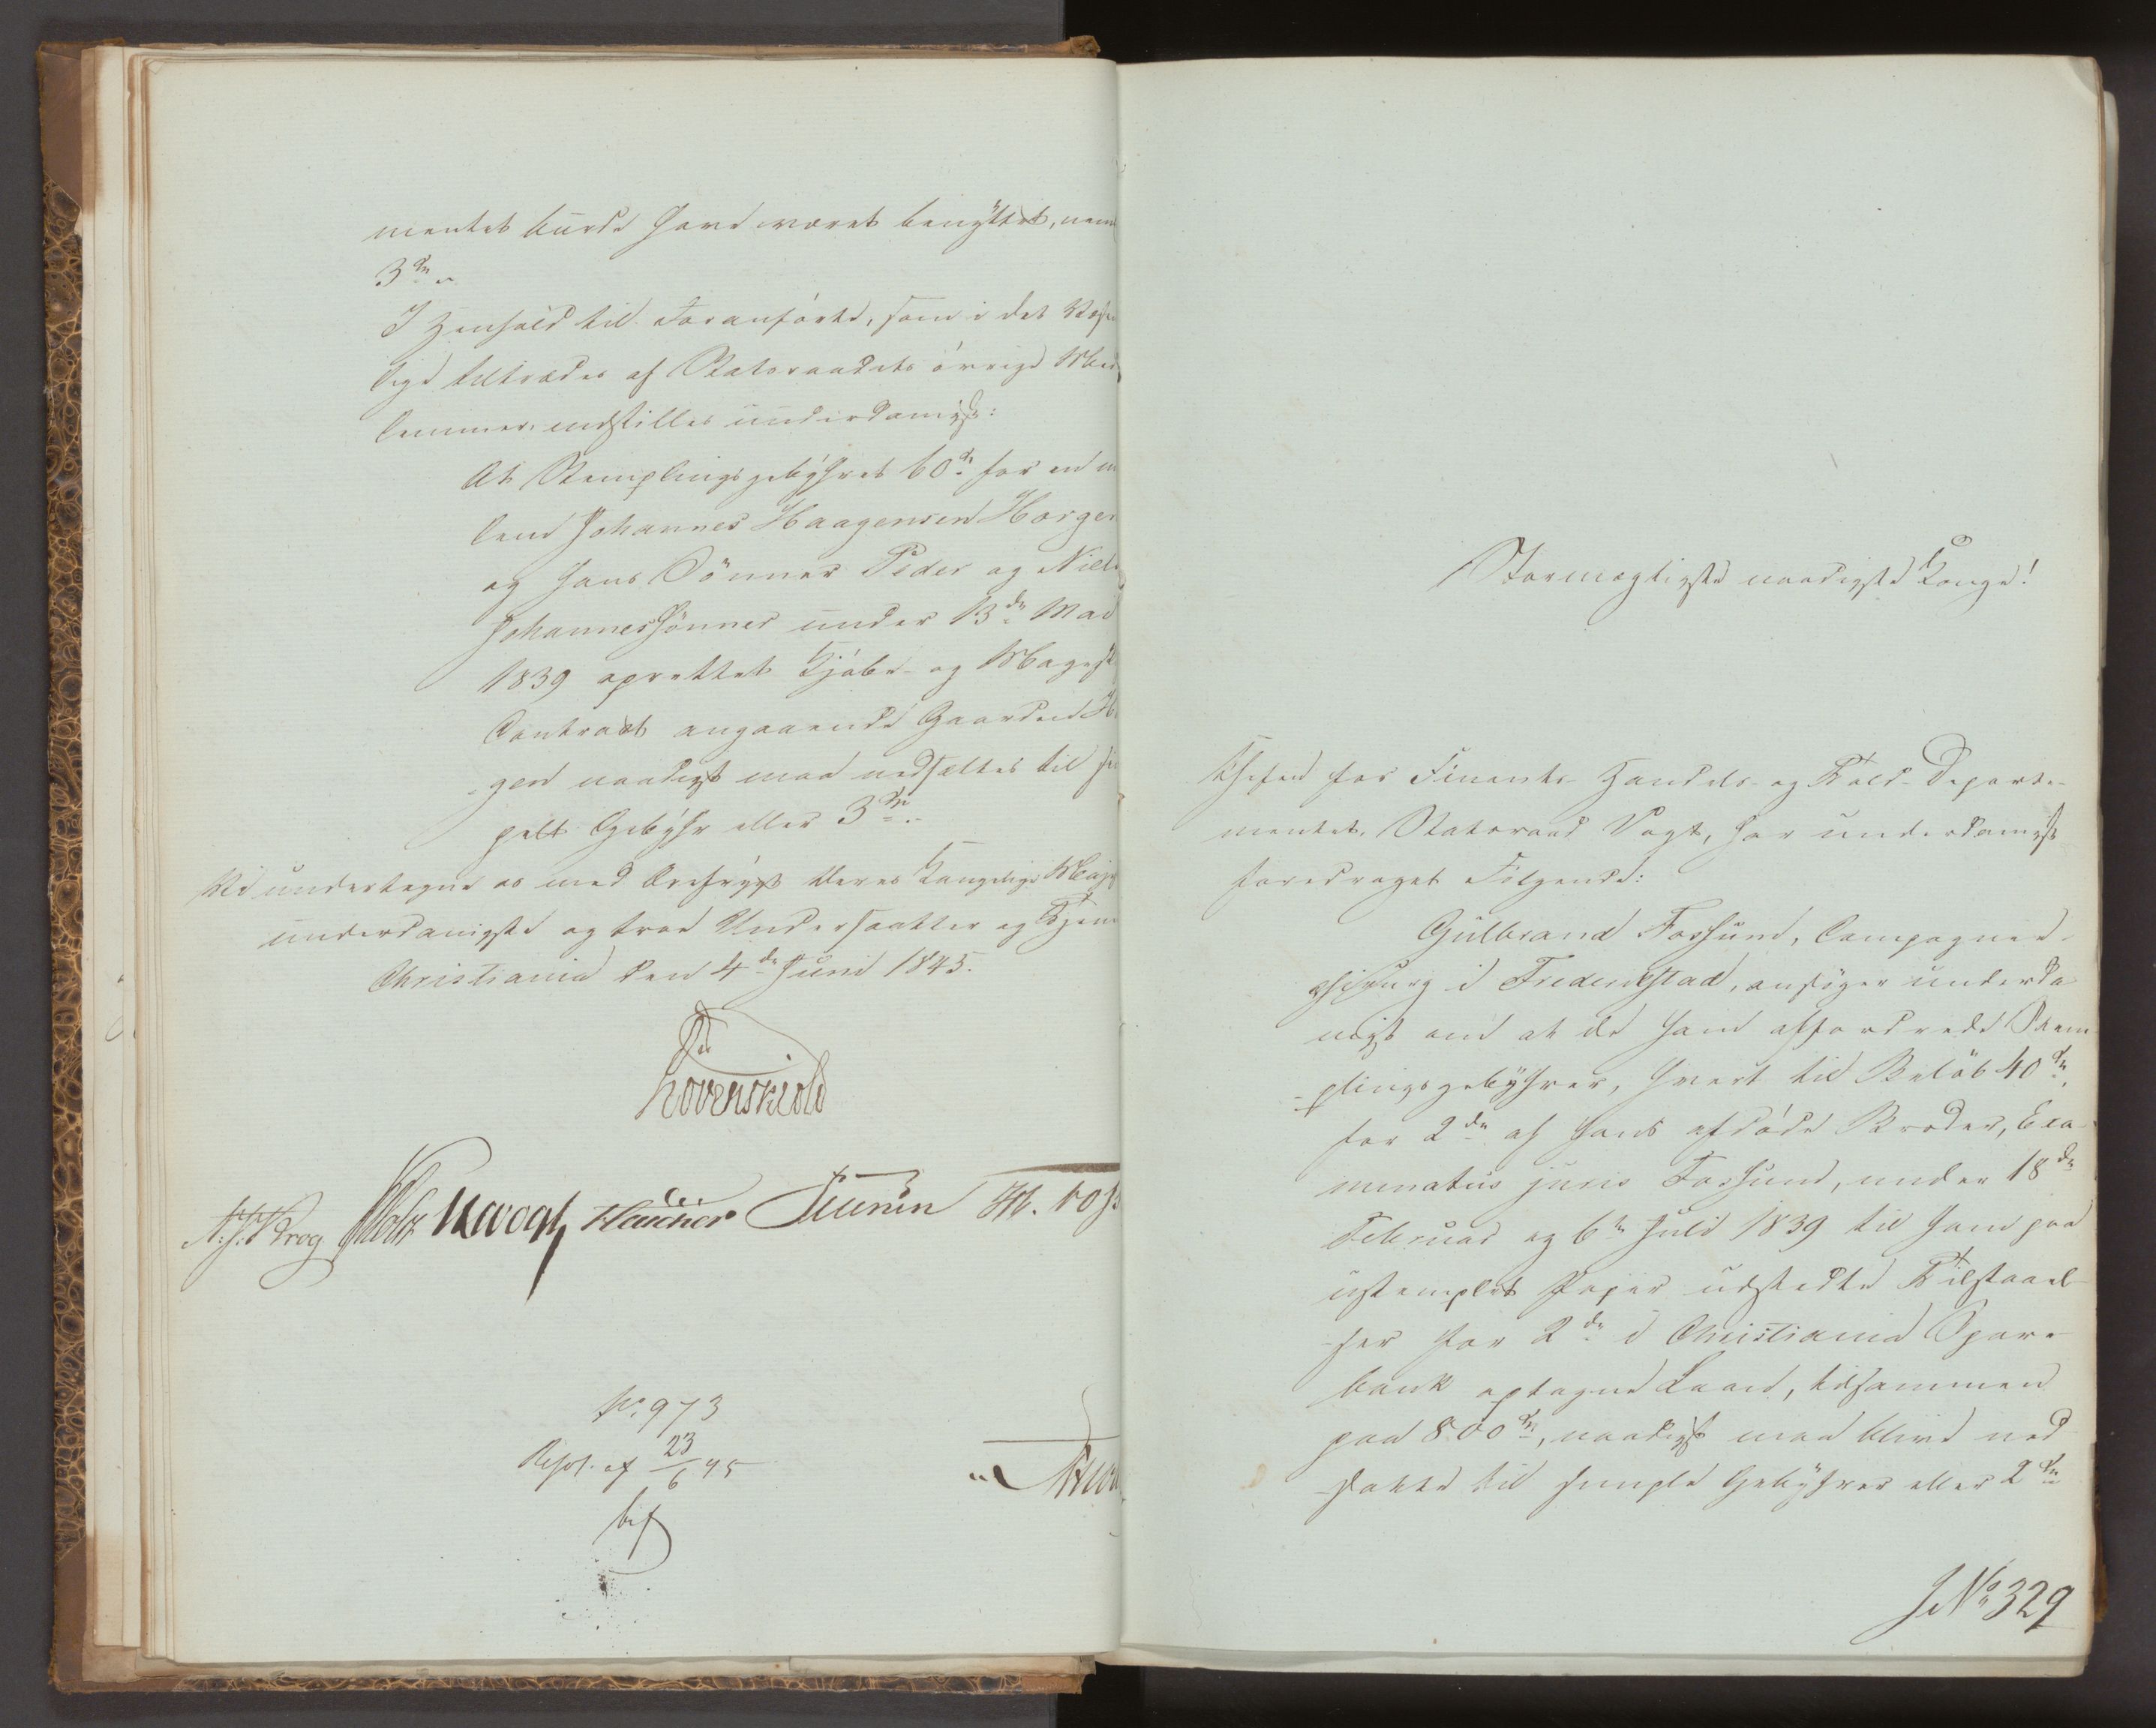 mentet burde have været benyttet, nem
3 
I Henhold til Foranførte, som i det Væsen
lige tiltrædes af Statsraadets øvrige Med
lemmer, indstilles underdanigst:
At Stemplingsgebyhret 60 for en m
lem Johannes Haagensen Horgen
og hans Sönner Peder og Niels
Johannessönner under 13de Mai
1839 oprettet Kjøbe- og Mageskifte
Contract angaaende Gaarden Ho
gen naadigst maa nedsættes til sim
pelt Gebyhr eller 3
Vi undertegne os med Ærefrygt Deres Kongelige Maje
underdanigste og troe Undersaatter og Tjene
Christiania den 4de Juni 1845.
Løvenskiold
Krog Holst Vogt
No 973
Resol. af 23/6 45
bif
Stormægtigste naadigste Konge!
Chefen for Finants- Handels- og Told-Departe-
mentet, Statsraad Vogt, har underdanigst
foredraget Følgende:
Gulbrand Fossum, Compagnie-
chirurg i Fredrikstad, ansøger underda
nigst om at de ham affordrede Stem
-plingsgebyhrer, hvert til Beløb 40
for 2de af hans afdøde Broder, Exa-
minatus juris Fossum, under 18de
Februar og 6te Juli 1839 til ham paa
ustemplet Papir udstedte Tilstaael-
-ser for 2de i Christiania Spare-
bank optagne Laan, tilsammen
paa 800, naadigst maa blive ned
-satte til simple Gebyhrer eller 2
J No 329